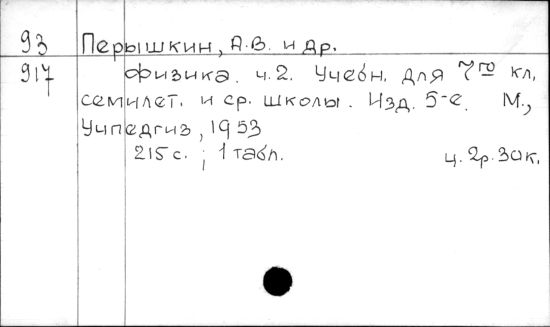 93 Перышкин, А.В. и др.
917 Физика. ч.2. Учебн. для 7го кл.
семилет. и ср. школы. Изд. 5-е. М.,
Учпедгиз, 1953
215 с. ; 1 табл. ц. 2р. 30к.